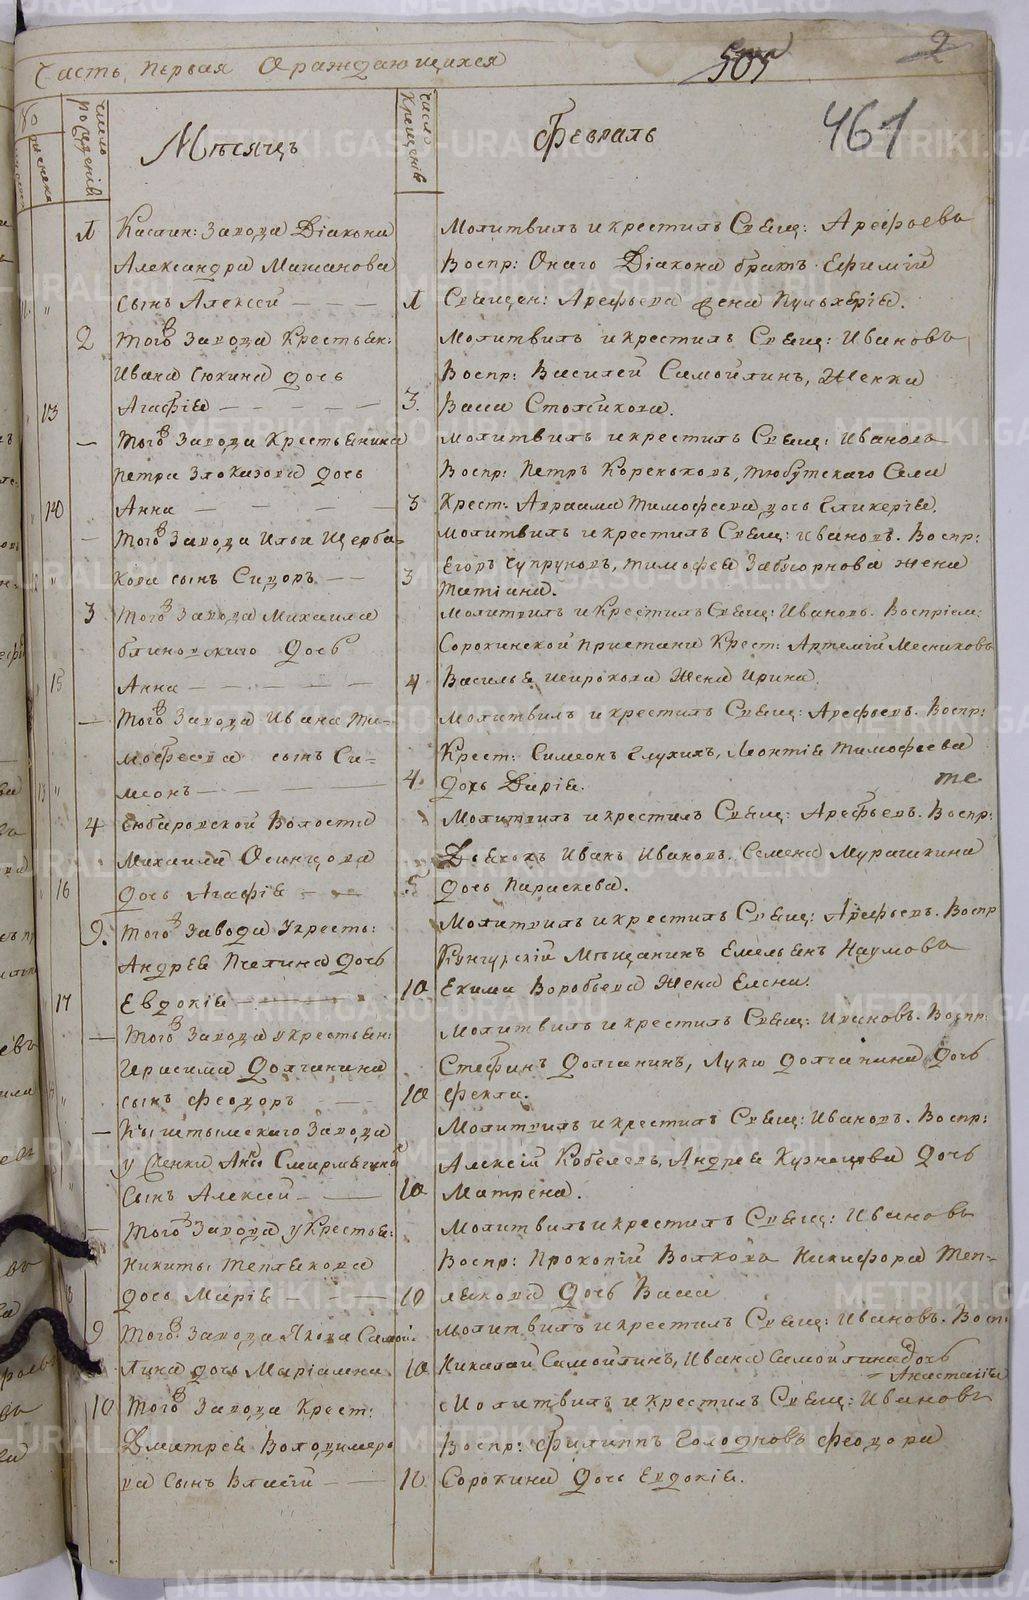 Часть первая Ораждающихся
505
2
461
число рожденія
Мѣсяцъ
число крещенія
Февраль
1 Каслин: Завода Діакона
Александра Мошанова
сынъ Алексей
1
Молитвилъ и крестилъ Свящ: Арефьевъ
Воспр: Онаго Діакона братъ Ефимій
Священ: Арефьева жена Пульхерія.
2 Того завода Крестьян:
Ивана Сюкина дочь
13 Агафія
3.
Молитвилъ и крестилъ Свящ: Ивановъ
Воспр: Василей Самойлинъ, Женка
Васса Стожкова.
Того завода Крестьянина
Петра Злоказова дочь
14 Анна
3
Молитвилъ и крестилъ Свящ: Ивановъ
Воспр: Петръ Кореньковъ, Тюбутскаго Села
Крест: Авраама Тимофеева дочь Гликерія.
Того завода Ильи Щерба=
кова сынъ Сидоръ
3
Молитвилъ и крестилъ Свящ: Ивановъ. Воспр:
Егоръ Супруновъ, Тимофея Забгорнова жена
Татіана.
3 Того завода Михаила
блиновскаго дочь
15 Анна
4
Молитвилъ и крестилъ Свящ: Ивановъ. Воспріем:
Сорокинской пристани Крест: Артемій Месниковъ
Василья Широкова Жена Ирина.
Того завода Ивана Ти=
мофеева сынъ Си=
меонъ
4.
Молитвилъ и крестилъ Свящ: Арефьевъ. Воспр:
Крест: Симеонъ Глухихъ, Леонтія Тимофеева
дочь Дарія.
4 Михаила Осинцова
16 дочь Агафія
5
Молитвилъ и крестилъ Свящ: Арефьевъ. Воспр:
Дьячокъ Иванъ Ивановъ. Семена Мурашкина
дочь Параскева.
9. Того завода У крестъ:
Андрея Пчелина дочь
17 Евдокія
10
Молитвилъ и крестилъ Свящ: Арефьевъ. Воспр
Кунгурскій Мѣщанинъ Емельянъ Наумовъ
Екима Воробьева Жена Елена.
Того завода у крестьян:
Герасима Долганина
сынъ Феодоръ
10
Молитвилъ и крестилъ Свящ: Ивановъ. Воспр:
Стефанъ Долганинъ, Луки Долганина дочь
Фекла.
Кыштымскаго Завода
сынъ Алексей
10
Молитвилъ и крестилъ Свящ: Ивановъ. Воспр:
Алексій Кобелевъ, Андрея Кузнецова дочь
Матрена.
Того завода у Крестья:
Никиты Теплякова
дочь Марія
10
Молитвилъ и крестилъ Свящ: Ивановъ
Воспр: Прокопій Волковъ Никифора Теп=
лякова дочь Васса
9 Того завода Якова Самой=
лина дочь Маріамна
10
Молитвилъ и крестилъ Свящ: Ивановъ. Восп:
Николай Самойлинъ, Ивана Самойлина дочь
Анастасія
10 Того завода Крест:
Дмитрея Володимеро
ва сынъ Власій
10
Молитвилъ и крестилъ Свящ: Ивановъ
Воспр: Филиппъ Голодновъ Феодора
Сорокина дочь Евдокія.